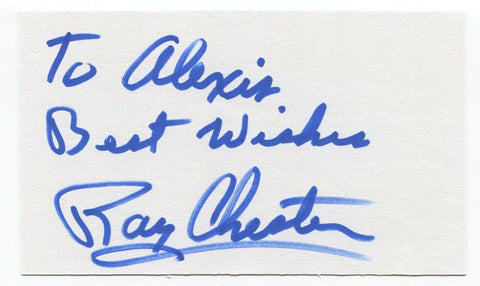 To Alexis
Best Wishes
Ray Chester